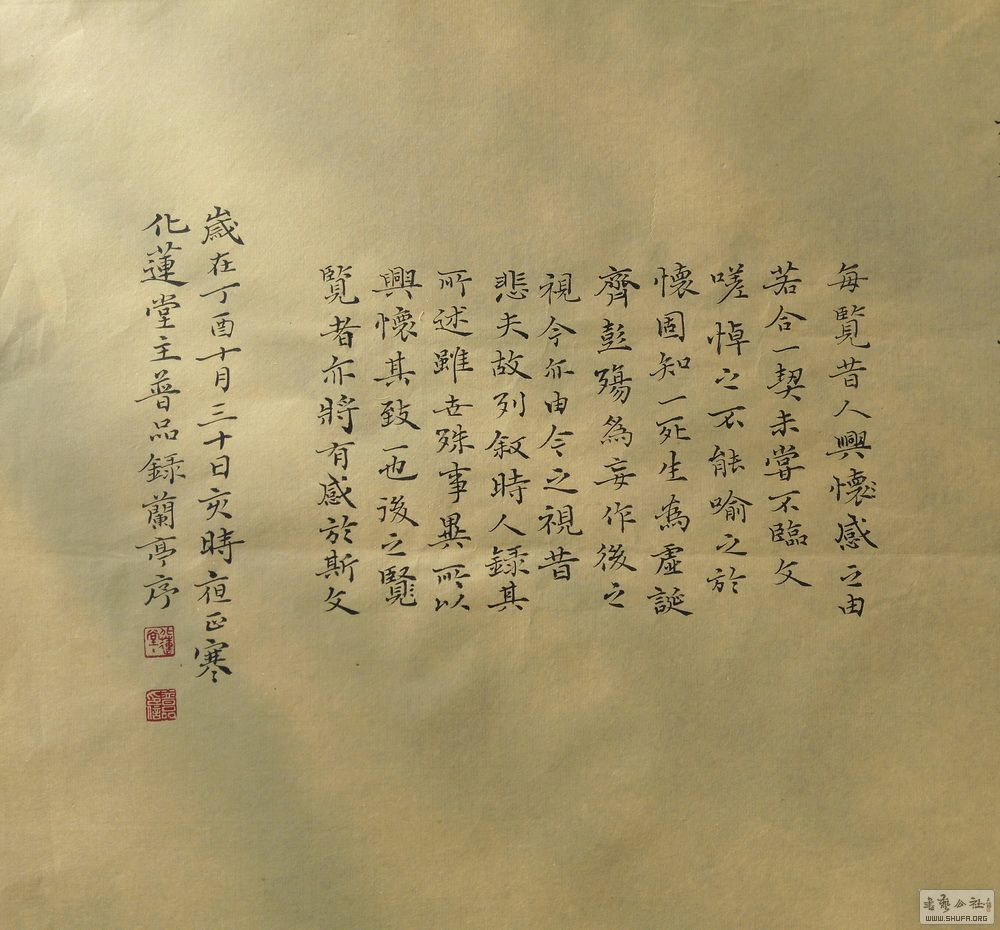 每覽昔人興懷感之由
若合一契未嘗不臨文
嗟悼之不能喻之於
懷固知一死生為虛誕
齊彭殤為妄作後之
視今亦由今之視昔
悲夫故列叙時人錄其
所述雖世殊事異所以
興懷其致一也後之覽
覽者亦將有感於斯文
歲在丁酉十月三十日亥時夜正寒
化蓮堂主普品錄蘭亭序
書藝公社
WWW.SHUFA.ORG